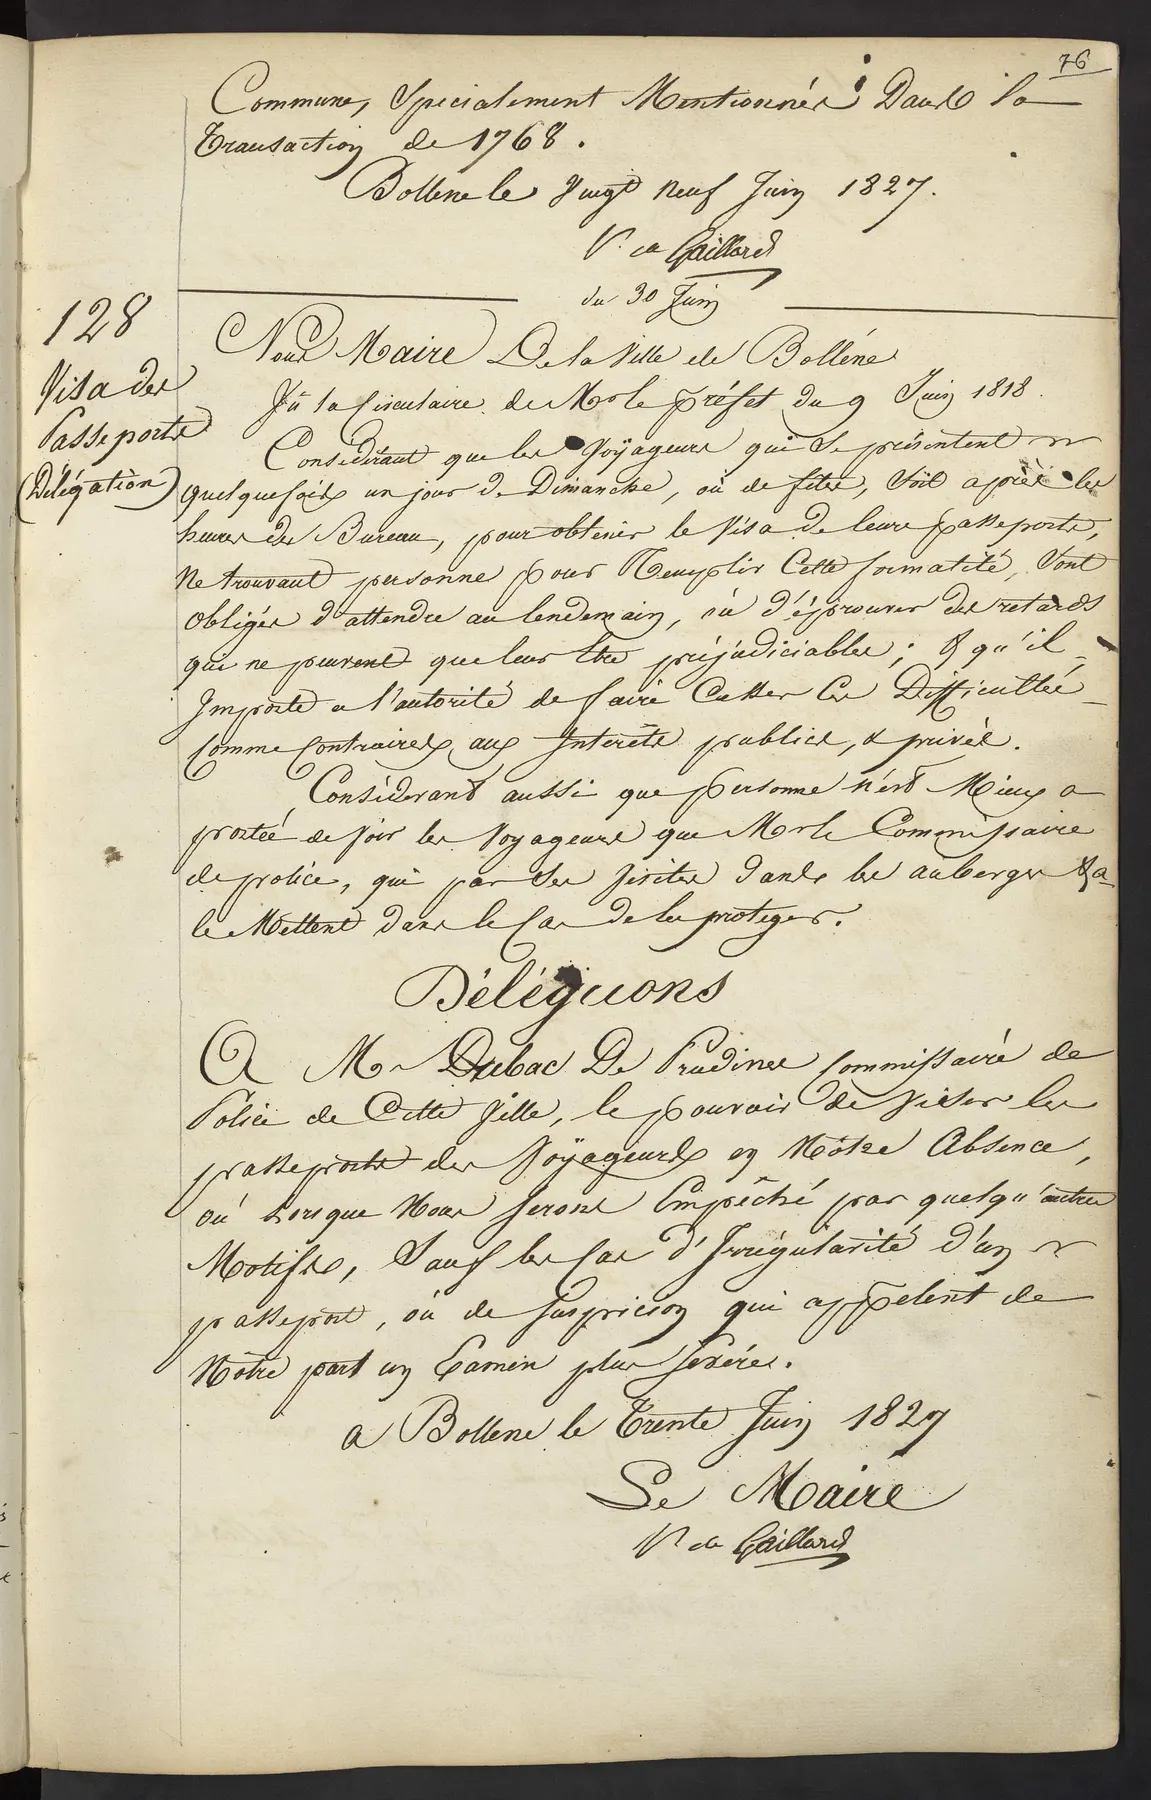 76
Commune, Specialement Mentionnés Dans la
Transaction de 1768.
Bollene le Vingt neuf Juin 1827.
V. de Gaillard
du 30 Juin
128
Visa des
Passeports
(Délégation)
Nous Maire De la Ville de Bolléne
Vû la Circulaire de Mr le préfet du 9 Juin 1818.
Considérant que les Voÿageurs qui se présentent
quelquefois un jour de Dimanche, où de fêtes, soit après les
heures des Bureau, pour obtenir le Visa de leurs passeports,
Ne trouvant personne pour Remplir Cette formalité, Sont
obligés d'attendre au lendemain, où d'éprouver des retards
qui ne peuvent que leur être préjudiciables; & qu'il
Importe a l'autorité de faire Cesser Ces Difficultés
Comme Contraires aux Interêts publics, & privés.
Considerant aussi que personne n'est Mieux a
portée de Voir les Voyageurs que Mr le Commissaire
de police, qui par Ses Visites dans les auberges &a
le Mettent dans le Cas de les proteger.
Déléguons
A Mr Dubac De Pradines Commissaire de
Police de Cette Ville, le pouvoir de Viser les
passeports des Voÿageurs en Nôtre Absence,
où Lorsque Nous serons Empêché par quelqu'autres
Motifs, Sauf les Cas d'Irrégularité d'un
passeport, où de Suspricion qui appelent de
Nôtre part un Examen plus Sévéres.
a Bollene le Trente Juin 1827
Le Maire
V. de Gaillard